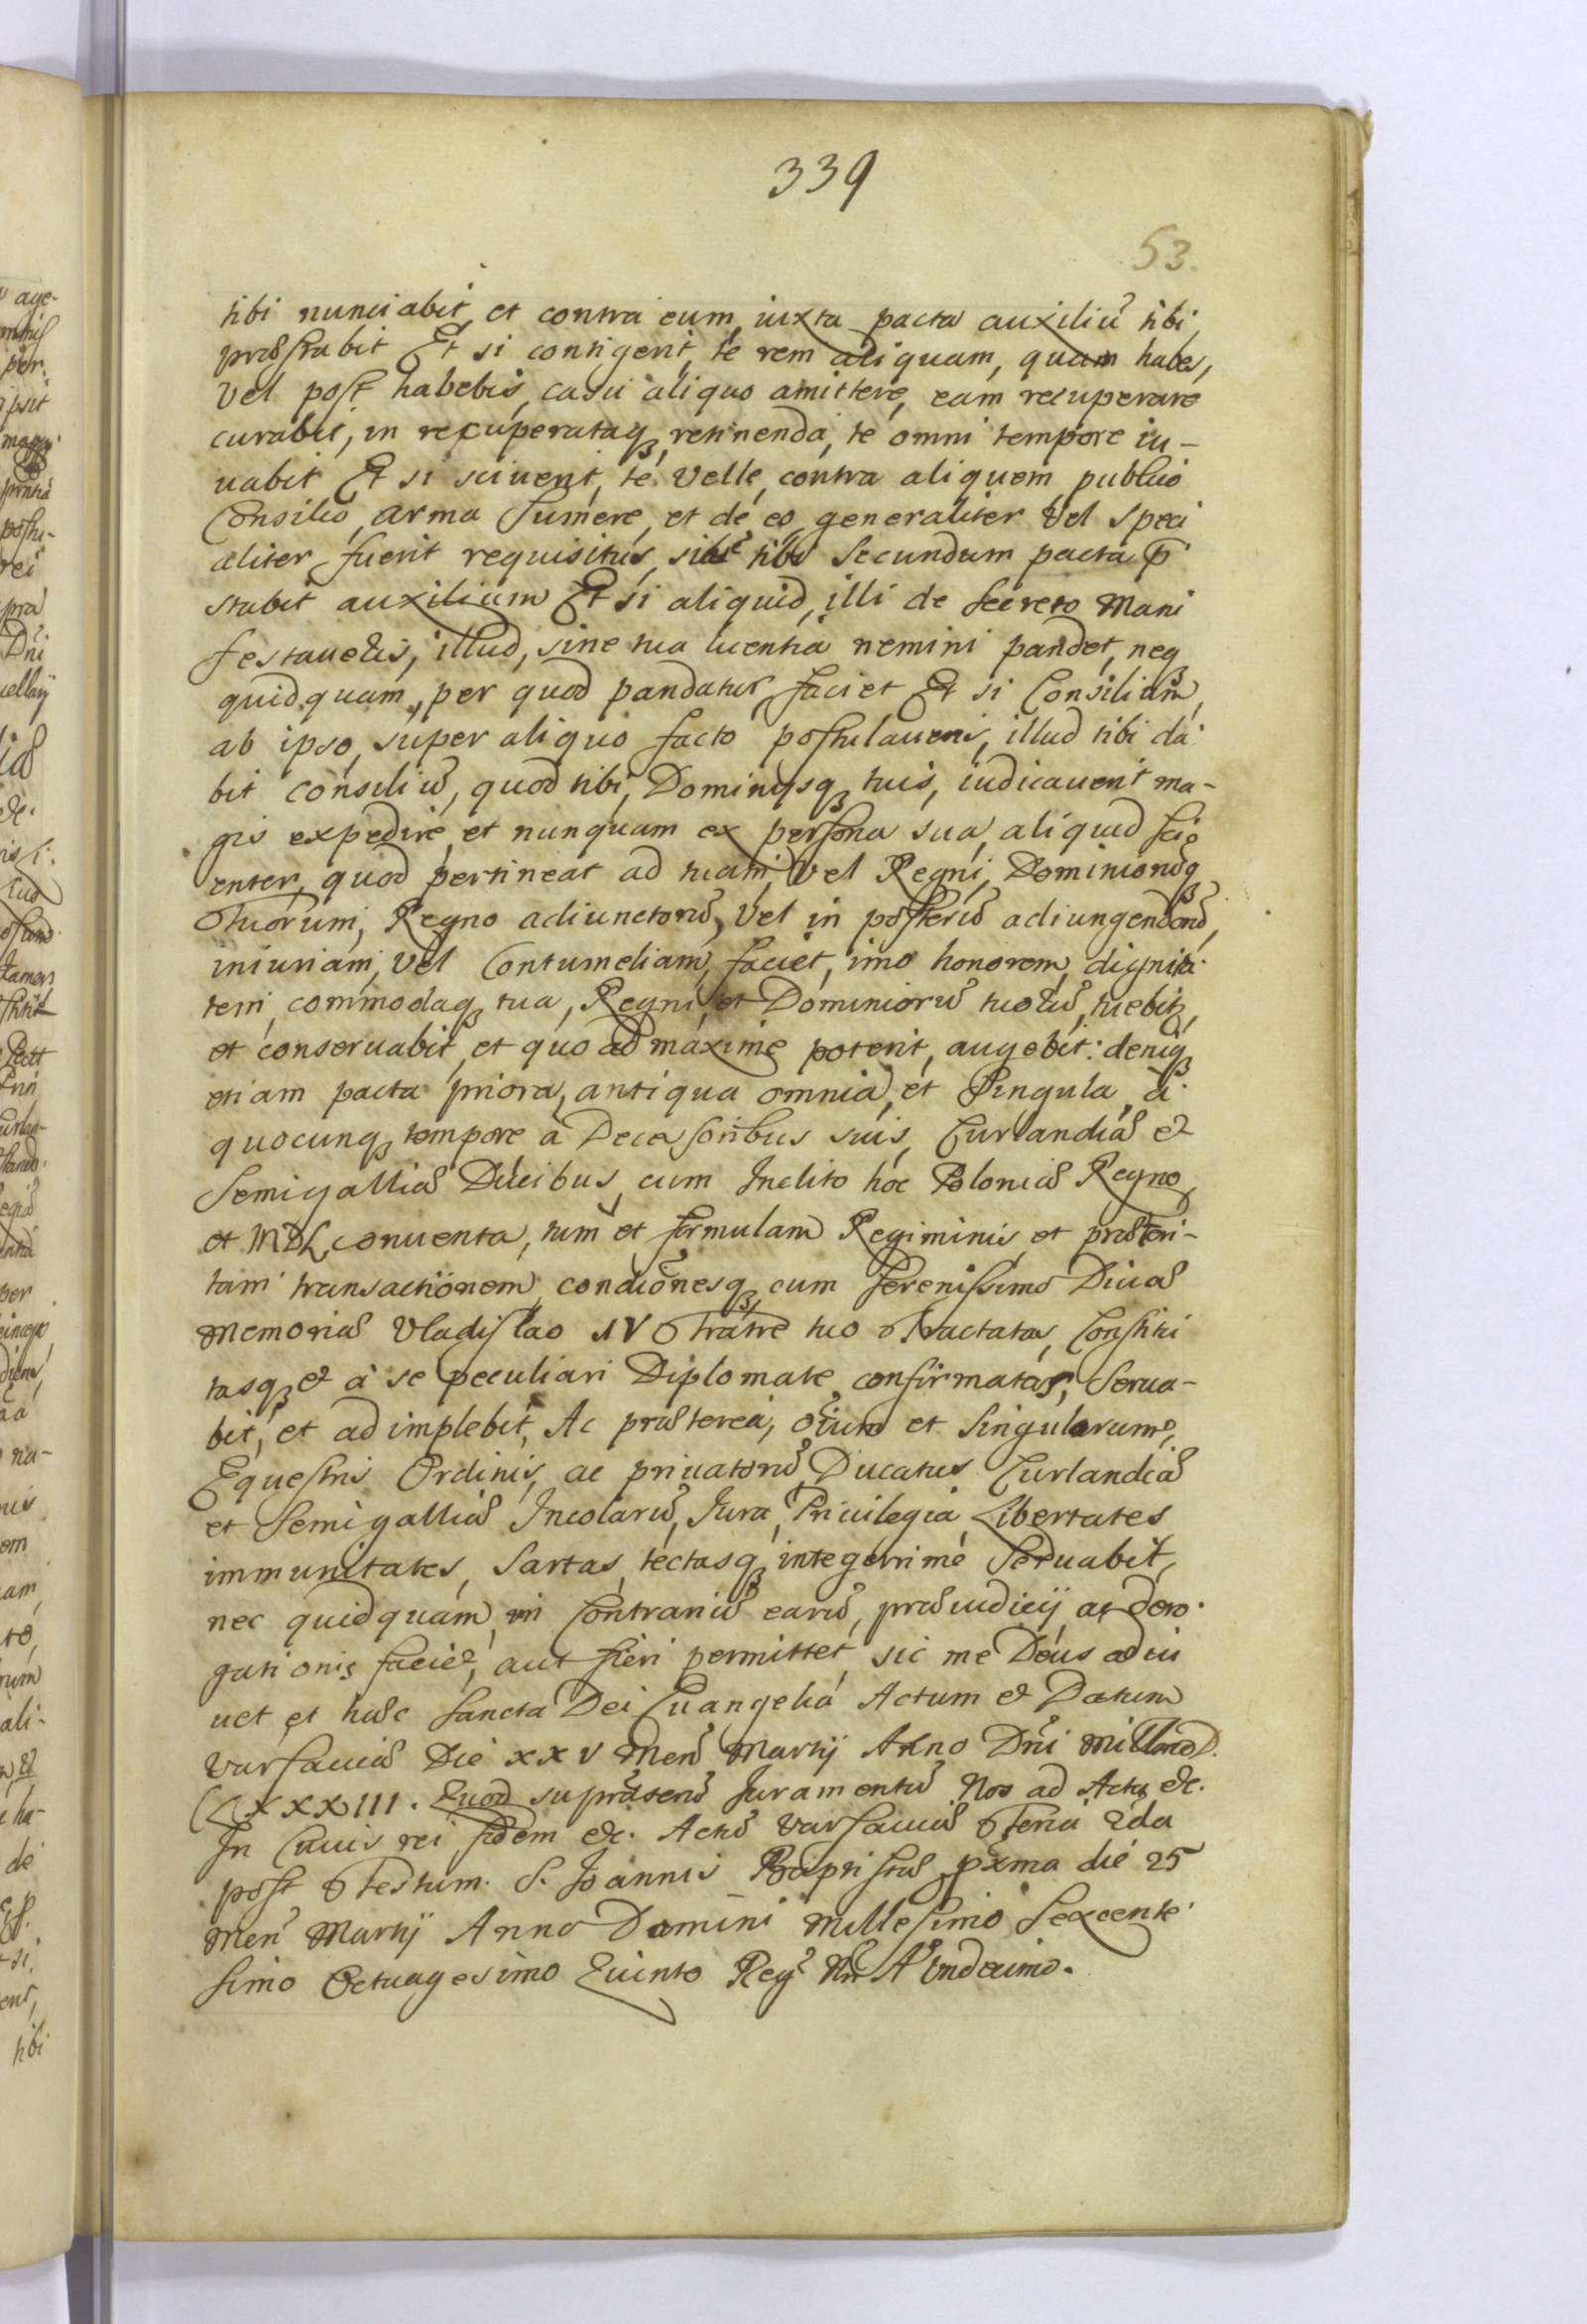 339
53.
tibi nunciabit, et contra eum, iuxta pacta auxiliũ tibi,
præstabit Et si contigerit, te rem aliquam, quam habes,
vel post habebis, casu aliquo amittere, eam recuperare
curabit, in recuperataq₃ retinenda, te omni tempore iu-
uabit Et si sciuerit, te velle, contra aliquem, publico
Consilio, arma Sumere, et de eo, generaliter vel speci
aliter, fuerit requisitus, tibi Secundum pacta p̃
stabit auxilium Et si aliquid, illi de Secreto Mani
festaueris, illud, sine tua licentia nemini pandet, neq₃
quidquam, per quod pandatur, faciet Et si Consilium,
ab ipso, super aliquo facto postulaueris, illud tibi da
bit consiliũ, quod tibi, Dominijsq₃ tuis, iudicauerit ma-
gis expedire, et nunquam ex persona sua, aliquid sci
enter, quod pertineat ad tuam, vel Regni, Dominiorũq₃
Tuorum, Regno adiunctorũ, vel in posterũ adiungendorũ,
iniuriam, vel Contumeliam, faciet, imo honorem, dignita
tem, commodaq₃ tua, Regni, et Dominiorũ tuorũ, tuebit₃
et conseruabit, et quo ad maxime poterit, augebit: deniq₃
etiam pacta priora, antiqua omnia, et Singula, a
quocunq₃ tempore a Decessoribus suis, Curlandiæ et
Semigalliæ Ducibus, cum Inclito hoc Poloniæ Regno,
et MDL conuenta, tum et formulam Regiminis, et præteri-
tam transactionem, condic͂onesq₃ cum Serenissimo Diuæ
Memoriæ Vladislao IV Fratre tuo Tractatas, Constitu
tasq₃ et a se peculiari Diplomate confirmatas, Serua-
bit, et adimplebit, Ac præterea, oĩum et Singularum,
Equestris Ordinis, ac priuatorũ, Ducatus Curlandiæ
et Semigalliæ Incolarũ, Iura, Priuilegia, Libertates
immunitates, Sartas, tectasq₃ integerrime Seruabit,
nec quidquam, in Contrariũ earũ, præiudicij ac dero
gationis faciet, aut fieri permittet, sic me Deus adiu
uet et hæc Sancta Dei Euangelia Actum et Datum
Varsauiæ Die XXV Men̄ Martij Anno Dn̄i
LXXXIII. Quod supra Juramentũ Nos ad Acta etc.
In Cuius rei fidem etc. Actũ Varsauiæ Feria 2da
post Festum. S. Joannis Baptistæ pxma die 25
Men̄ Martij Anno Domini Millesimo Sexcente
simo Octuagesimo Quinto Reg̃ Nr̃i Aõ Undecimo.